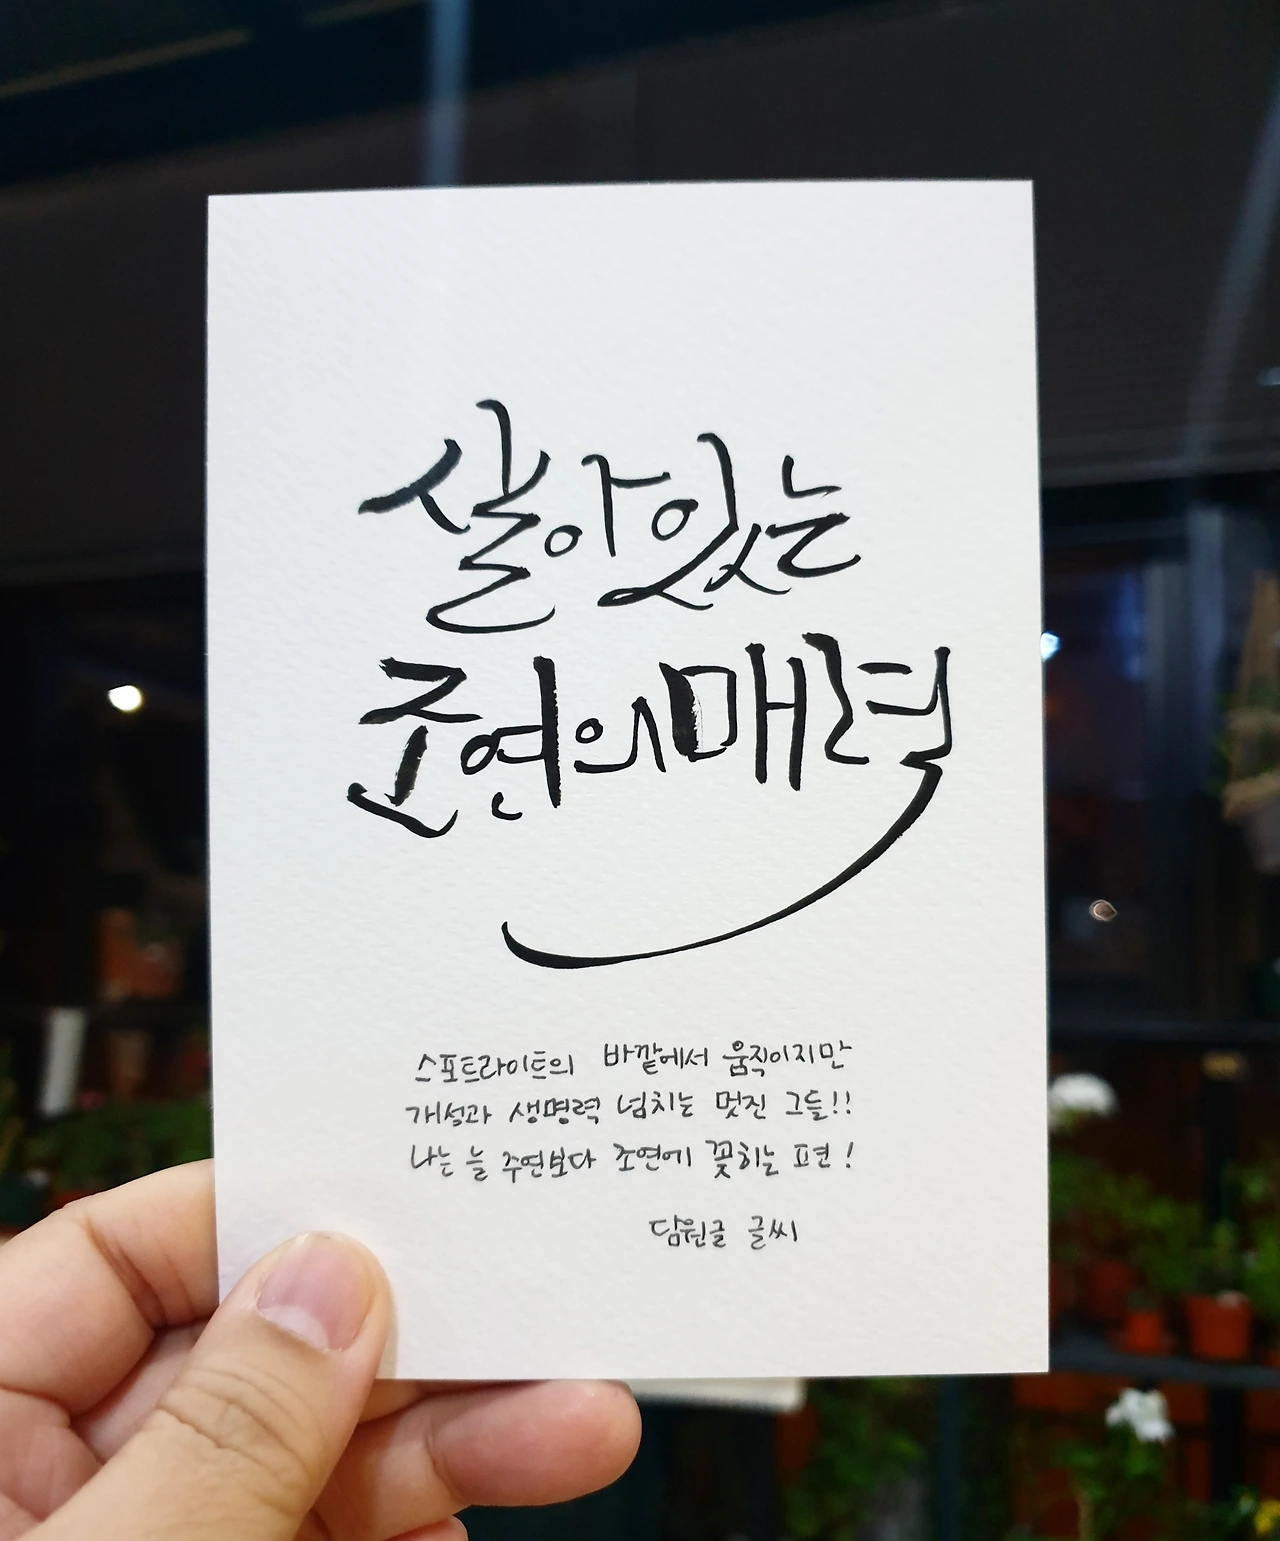 살아있는
주연의 매력
스포트라이트의 바깥에서 움직이지만
개성과 생명력 넘치는 멋진 그들!!
나는 늘 주연보다 조연에 꽂히는 편!
담원글 글씨